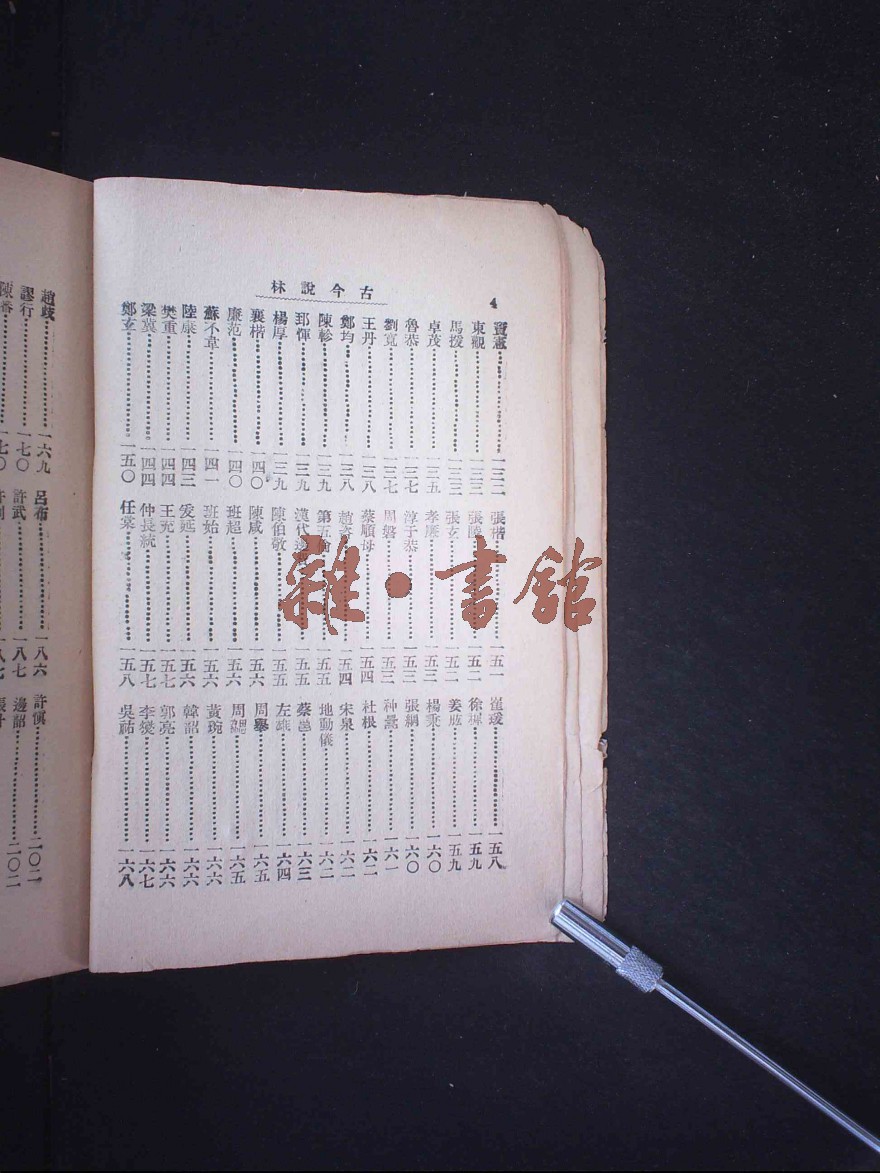 4
古今說林
竇憲…………一三二
東觀…………一三三
馬援…………一三三
卓茂…………一三五
魯恭…………一三七
劉寬…………一三七
王丹…………一三八
鄭均…………一三八
陳軫…………一三九
郅惲…………一三九
楊厚…………一三九
襄楷…………一四〇
廉范…………一四〇
蘇不韋…………一四一
陸康…………一四三
樊重…………一四四
梁冀…………一四四
鄭玄…………一五〇
張楷…………一五一
張…………一五二
張玄…………一五二
孝廉…………一五三
淳于恭…………一五三
周磐…………一五三
蔡順母…………一五四
趙…………一五四
第五倫…………一五五
漢代…………一五五
陳伯敬…………一五五
陳咸…………一五六
班超…………一五六
班始…………一五六
爰延…………一五六
王充…………一五七
仲長統…………一五七
任棠…………一五八
崔瑗…………一五八
徐穉…………一五九
姜肱…………一五九
楊秉…………一六〇
張綱…………一六〇
种暠…………一六一
杜根…………一六二
宋泉…………一六二
地動儀…………一六二
蔡邕…………一六三
左雄…………一六四
周舉…………一六五
周勰…………一六五
黃琬…………一六六
韓韶…………一六六
郭亮…………一六六
李燮…………一六七
吳祐…………一六八
趙歧…………一六九
謬行…………一七〇
陳蕃…………一七〇
呂布…………一八六
許武…………一八七
許慎…………二〇二
邊韶…………二〇二
雜·書館